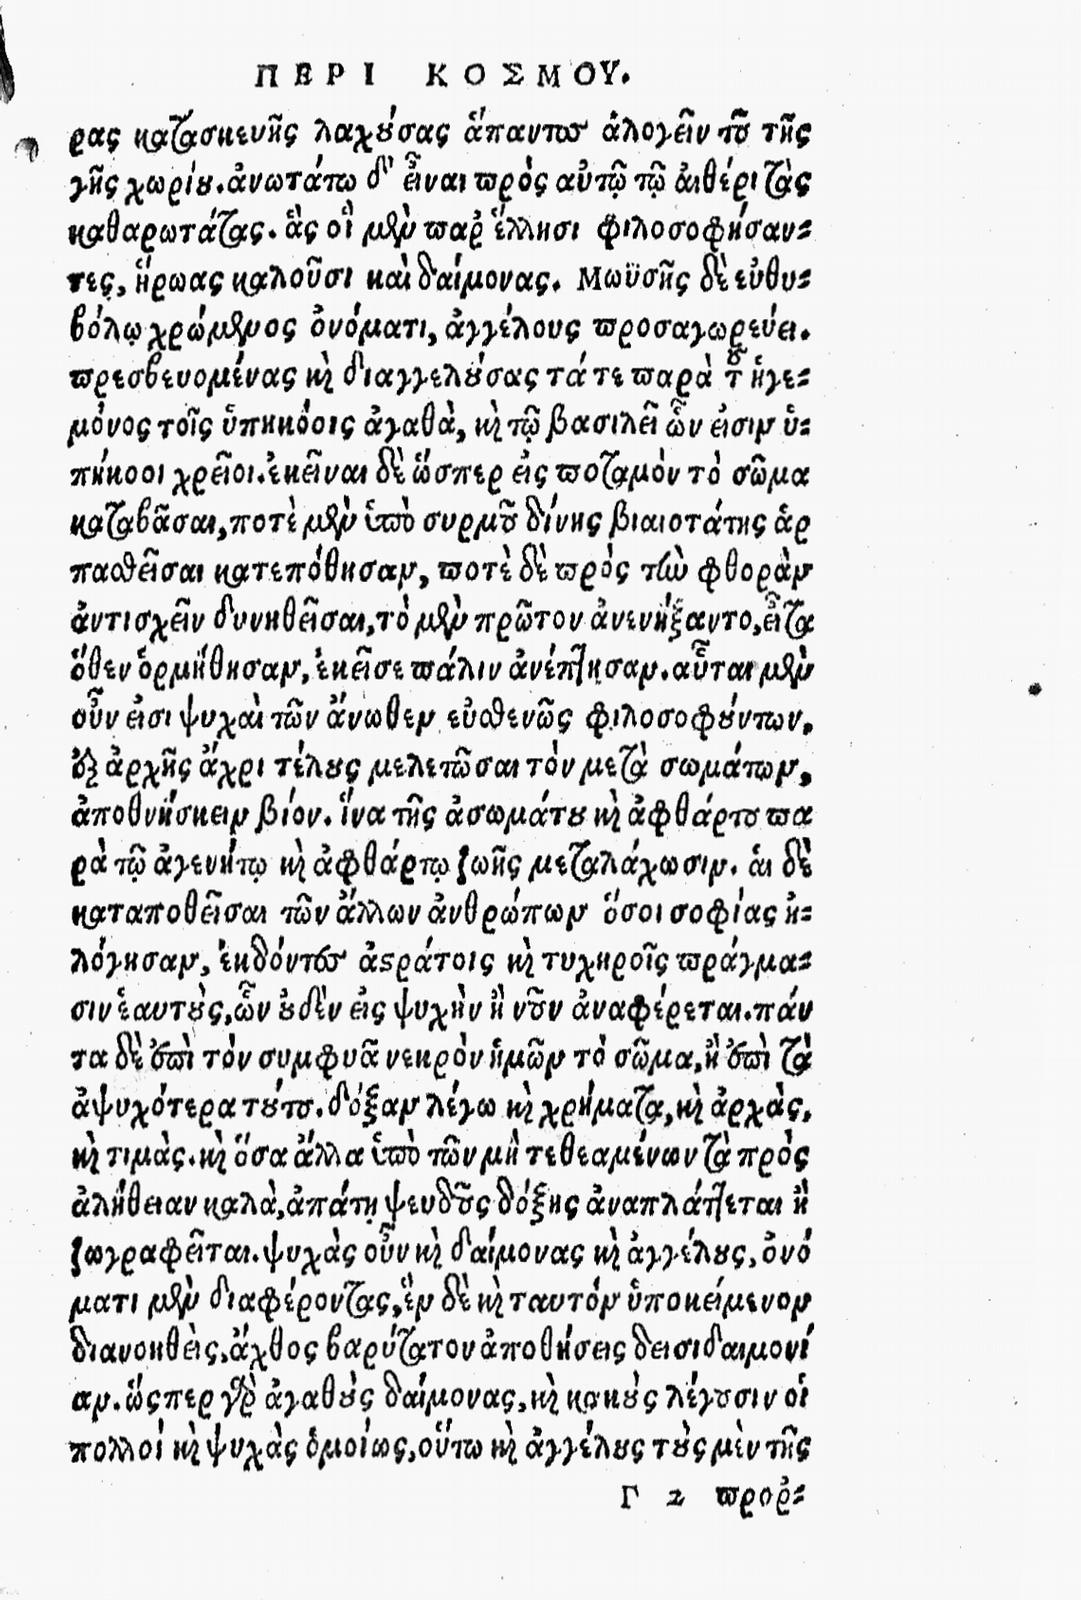 ΠΕΡΙ ΚΟΣΜΟΥ.
ρας κατασκευῆς λαχούσας ἅπαντος ἀλογεῖν τοῦ τῆς
γῆς χωρίου. ἀνωτάτω δ' εἶναι πρὸς αὐτῷ τῷ αἰθέρι τὰς
καθαρωτάτας. ἃς οἱ μὲν παρ' ἕλλησι φιλοσοφήσαν-
τες, ἥρωας καλοῦσι καὶ δαίμονας. Μωϋσῆς δὲ εὐθυ-
βόλῳ χρώμενος ὀνόματι, ἀγγέλους προσαγορεύει.
πρεσβευομένας καὶ διαγγελούσας τά τε παρὰ τοῦ ἡγε-
μόνος τοῖς ὑπηκόοις ἀγαθὰ, καὶ τῷ βασιλεῖ ὧν εἰσιν ὑ-
πήκοοι χρεῖοι. ἐκεῖναι δὲ ὥσπερ εἰς ποταμὸν τὸ σῶμα
καταβᾶσαι, ποτὲ μὲν ὑπὸ συρμοῦ δίνης βιαιοτάτης ἁρ
πασθεῖσαι κατεπόθησαν, ποτὲ δὲ πρὸς τὴν φθορὰν
ἀντισχεῖν δυνηθεῖσαι, τὸ μὲν πρῶτον ἀνενήξαντο, εἶτα
ὅθεν ὁρμήθησαν, ἐκεῖσε πάλιν ἀνέπτησαν. αὗται μὲν
οὖν εἰσι ψυχαὶ τῶν ἄνωθεν εὐσθενῶς φιλοσοφούντων.
ἐξ ἀρχῆς ἄχρι τέλους μελετῶσαι τὸν μετὰ σωμάτων,
ἀποθνήσκειν βίον. ἵνα τῆς ἀσωμάτου καὶ ἀφθάρτου πα
ρὰ τῷ ἀγενήτῳ καὶ ἀφθάρτῳ ζωῆς μεταλάχωσιν. αἱ δὲ
καταποθεῖσαι τῶν ἄλλων ἀνθρώπων ὅσοι σοφίας ἠ-
λόγησαν, ἐκδόντες ἀστράτοις καὶ τυχηροῖς πράγμα-
σιν ἑαυτοὺς, ὧν οὐδὲν εἰς ψυχὴν ἢ νοῦν ἀναφέρεται. πάν
τα δὲ ἐπὶ τὸν συμφυᾶ νεκρὸν ἡμῶν τὸ σῶμα, ἢ ἐπὶ τὰ
ἀψυχότερα τούτου. δόξαν λέγω καὶ χρήματα, καὶ ἀρχὰς,
καὶ τιμὰς. καὶ ὅσα ἄλλα ὑπὸ τῶν μὴ τεθεαμένων τὰ πρὸς
ἀλήθειαν καλὰ, ἀπάτῃ ψευδοῦς δόξης ἀναπλάττεται ἢ
ζωγραφεῖται. ψυχὰς οὖν καὶ δαίμονας καὶ ἀγγέλους, ὀνό
ματι μὲν διαφέροντας, ἓν δὲ καὶ ταυτὸν ὑποκείμενον
διανοηθεὶς, ἄχθος βαρύτατον ἀποθήσεις δεισιδαιμονί
αν. ὥς περ γὰρ ἀγαθοὺς δαίμονας, καὶ κακοὺς λέγουσιν οἱ
πολλοί καὶ ψυχὰς ὁμοίως, οὕτω καὶ ἀγγέλους τοὺς μὲν τῆς
Γ 2 προρ-